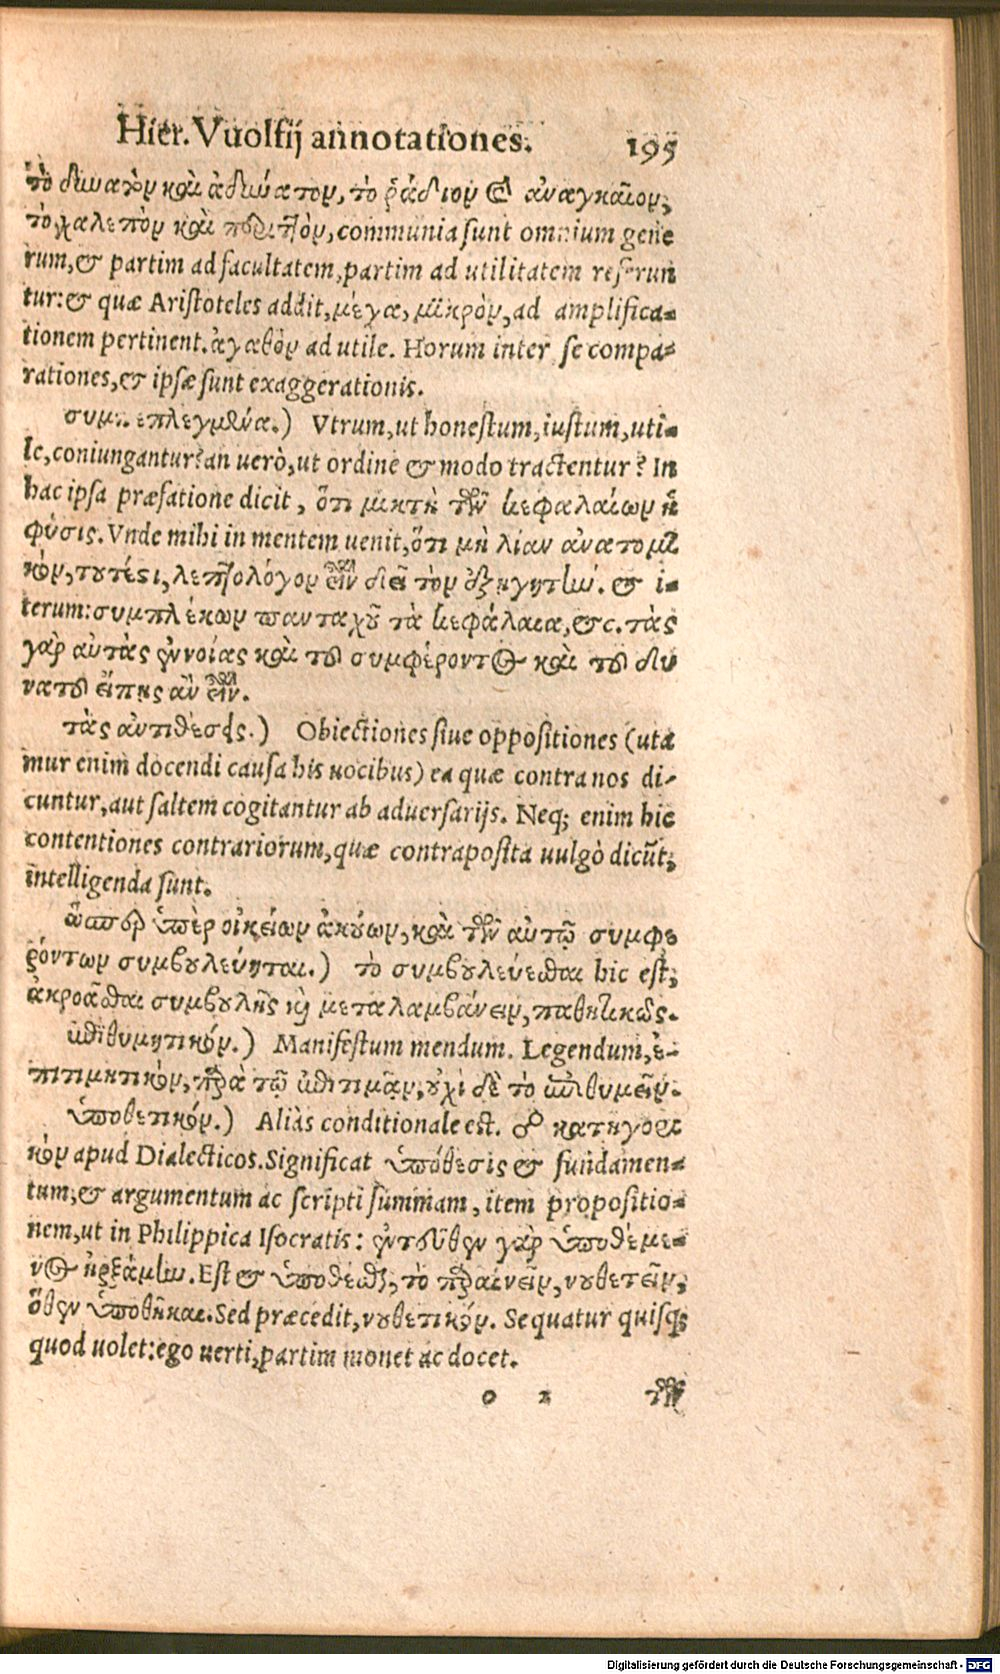 Hier. Vuolfij annotationes. 195
τὸ δυνατὸν καὶ ἀδύνατον, τὸ ῥᾴδιον & ἀναγκαῖον,
τὸ χαλεπὸν καὶ περιττὸν, communia sunt omnium gene
rum, & partim ad facultatem, partim ad utilitatem referun
tur: & quæ Aristoteles addit, μέγα, μικρὸν, ad amplifica-
tionem pertinent. ἀγαθὸν ad utile. Horum inter se compa-
rationes, & ipsæ sunt exaggerationis.
συμπεπλεγμένα.) Vtrum, ut honestum, iustum, uti-
le, coniungantur? an uerò, ut ordine & modo tractentur? In
hac ipsa præfatione dicit, ὅτι μικτὴ τῶν κεφαλαίων ἡ
φύσις. Vnde mihi in mentem uenit, ὅτι μὴ λίαν ἀνατομι
κὸν, τουτέστι, λεπτολόγον εἶναι δεῖ τὸν ἐξηγητὴν. & i-
terum: συμπλέκων πανταχοῦ τὰ κεφάλαια, &c. τὰς
γὰρ αὐτὰς ἐννοίας καὶ τοῦ συμφέροντος καὶ τοῦ δυ
νατοῦ εἴπῃς ἂν εἶναι.
τὰς ἀντιθέσεις.) Obiectiones siue oppositiones (uta
mur enim docendi causa his uocibus) ea quæ contra nos di-
cuntur, aut saltem cogitantur ab aduersarijs. Neq; enim hic
contentiones contrariorum, quæ contraposita uulgò dicūt,
intelligenda sunt.
ὥσπερ ὑπὲρ οἰκείων ἀκούων, καὶ τῶν αὐτῷ συμφε
ρόντων συμβουλεύηται.) τὸ συμβουλεύεσθαι hic est,
ἀκροᾶσθαι συμβουλῆς καὶ μεταλαμβάνειν, παθητικῶς.
ἐπιθυμητικόν.) Manifestum mendum. Legendum, ἐ-
πιτιμητικὸν, παρὰ τῷ ἐπιτιμᾶν, οὐχὶ δὲ τὸ ἐπιθυμεῖν.
ὑποθετικόν.) Aliàs conditionale est. ☍ κατηγορι
κὸν apud Dialecticos. Significat ὑπόθεσις & fundamen-
tum, & argumentum ac scripti summam, item propositio-
nem, ut in Philippica Isocratis: ἐντεῦθεν γὰρ ὑποθέμε-
νος ἠρξάμην. Est & ὑποθέσθαι, τὸ παραινεῖν, νουθετεῖν,
ὅθεν ὑποθῆκαι. Sed præcedit, νουθετικόν. Sequatur quisq;
quod uolet: ego uerti, partim monet ac docet.
o 2 τῶν
Digitalisierung gefördert durch die Deutsche Forschungsgemeinschaft - DFG